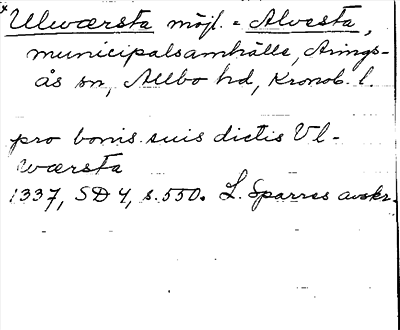 *Ulwærsta möjl. = Alvesta,
municipalsamhälle, Arings-
ås sn, Allbo hd, Kronob. l.
pro bonis suis dictis Vl-
wærsta
1337, SD 4, s. 550. L. Sparres avskr.